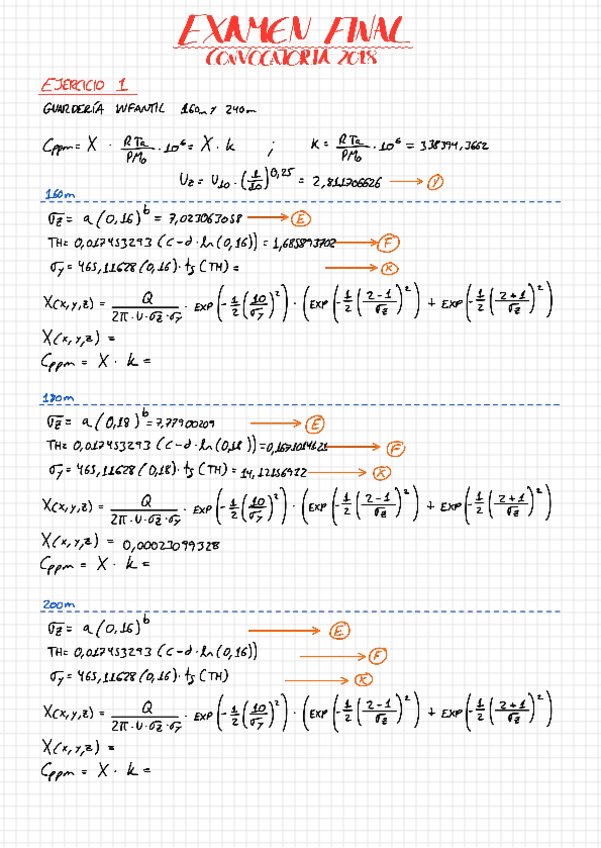 EXAMEN FINAL
CONVOCATORIA 2018
EJERCICIO 1
GUARDERÍA INFANTIL 160m Y 240m
Cppm = X · RTa/PMo · 10⁶ = X · k ; K = RTa/PMo · 10⁶ = 338394,3662
Uz = U10 · (1/10)^0,25 = 2,811706626 → Y
160m
σz = a (0,16)^b = 7,023063058 → E
TH = 0,017453293 (c-d·ln(0,16)) = 1,685893702 → F
σy = 465,11628 (0,16)·tg (TH) = → K
X(x,y,z) = Q/(2π·U·σz·σy) · EXP(-1/2(10/σy)²) · (EXP(-1/2(2-1/σz)²) + EXP(-1/2(2+1/σz)²))
X(x,y,z) =
Cppm = X · k =
180m
σz = a (0,18)^b = 7,77900209 → E
TH = 0,017453293 (c-d·ln(0,18)) = → F
σy = 465,11628 (0,18)·tg (TH) = 14,12156922 → K
X(x,y,z) = Q/(2π·U·σz·σy) · EXP(-1/2(10/σy)²) · (EXP(-1/2(2-1/σz)²) + EXP(-1/2(2+1/σz)²))
X(x,y,z) = 0,00023099328
Cppm = X · k =
200m
σz = a (0,16)^b → E
TH = 0,017453293 (c-d·ln(0,16)) → F
σy = 465,11628 (0,16)·tg (TH) → K
X(x,y,z) = Q/(2π·U·σz·σy) · EXP(-1/2(10/σy)²) · (EXP(-1/2(2-1/σz)²) + EXP(-1/2(2+1/σz)²))
X(x,y,z) =
Cppm = X · k =